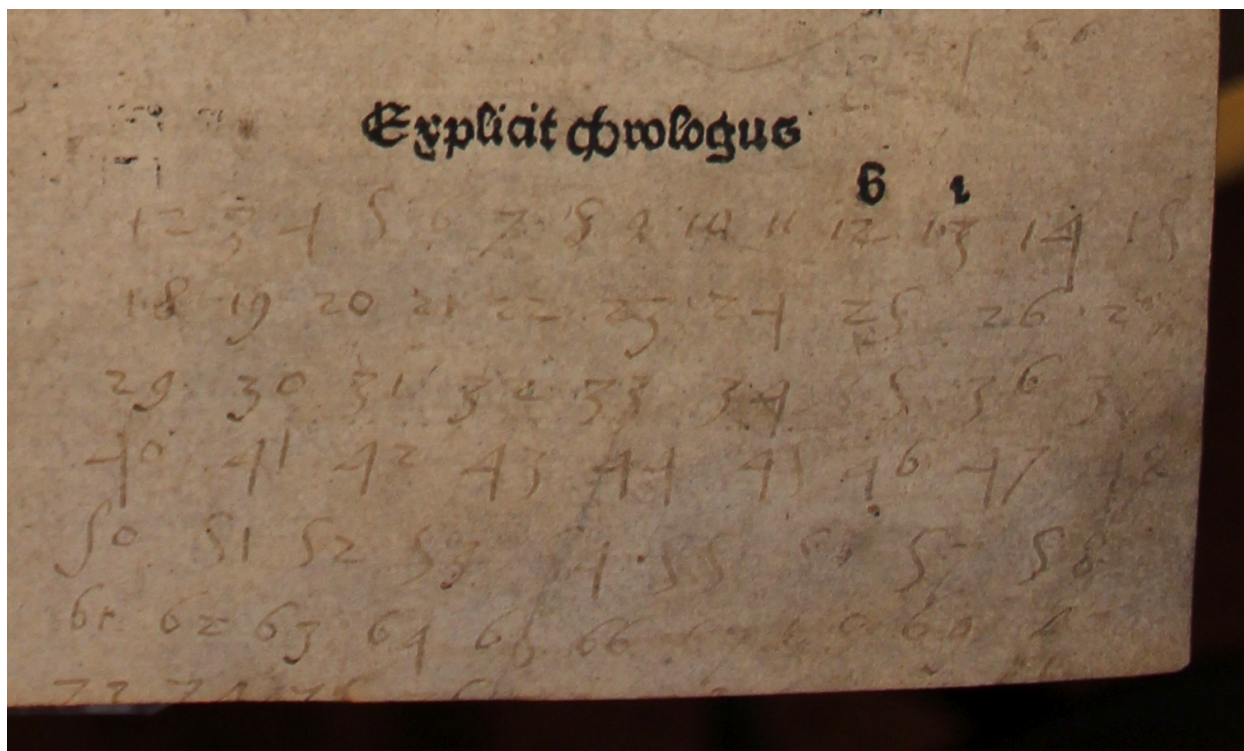 Explicit Prologus
b i
1 2 3 4 5 6 7 8 9 10 11 12 13 14 15
18 19 20 21 22 23 24 25 26
29 30 31 32 33 34 35 36
40 41 42 43 44 45 46 47 48
50 51 52 53 54 55 57 58
61 62 63 64 65 66
73 74 75